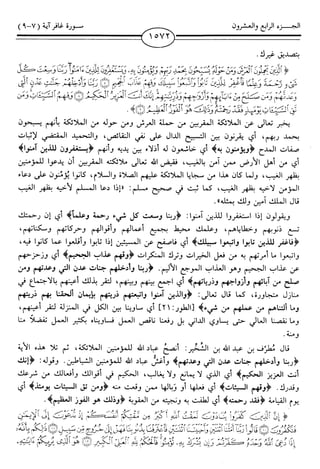 الجزء الرابع والعشرون
سورة غافر آية (٧-٩)
١٥٧٢
بتصديق غيرك.
﴿الَّذِينَ يَحْمِلُونَ الْعَرْشَ وَمَنْ حَوْلَهُ يُسَبِّحُونَ بِحَمْدِ رَبِّهِمْ وَيُؤْمِنُونَ بِهِ وَيَسْتَغْفِرُونَ لِلَّذِينَ آمَنُوا رَبَّنَا وَسِعْتَ كُلَّ
شَيْءٍ رَحْمَةً وَعِلْمًا فَاغْفِرْ لِلَّذِينَ تَابُوا وَاتَّبَعُوا سَبِيلَكَ وَقِهِمْ عَذَابَ الْجَحِيمِ ﴿٧﴾ رَبَّنَا وَأَدْخِلْهُمْ جَنَّاتِ عَدْنٍ الَّتِي
وَعَدْتَهُمْ وَمَنْ صَلَحَ مِنْ آبَائِهِمْ وَأَزْوَاجِهِمْ وَذُرِّيَّاتِهِمْ إِنَّكَ أَنْتَ الْعَزِيزُ الْحَكِيمُ ﴿٨﴾ وَقِهِمُ السَّيِّئَاتِ وَمَنْ
تَقِ السَّيِّئَاتِ يَوْمَئِذٍ فَقَدْ رَحِمْتَهُ وَذَلِكَ هُوَ الْفَوْزُ الْعَظِيمُ ﴿٩﴾﴾.
يخبر تعالى عن الملائكة المقربين من حملة العرش ومن حوله من الملائكة بأنهم يسبحون
بحمد ربهم، أي يقرنون بين التسبيح الدال على نفي النقائص، والتحميد المقتضي لإثبات
صفات المدح ﴿ويؤمنون به﴾ أي خاشعون له أذلاء بين يديه وأنهم ﴿يستغفرون للذين آمنوا﴾
أي من أهل الأرض ممن آمن بالغيب، فقيض الله تعالى ملائكته المقربين أن يدعوا للمؤمنين
بظهر الغيب، ولما كان هذا من سجايا الملائكة عليهم الصلاة والسلام، كانوا يُؤمنون على دعاء
المؤمن لأخيه بظهر الغيب، كما ثبت في صحيح مسلم: «إذا دعا المسلم لأخيه بظهر الغيب
قال الملك آمين ولك بمثله».
ويقولون إذا استغفروا للذين آمنوا: ﴿ربنا وسعت كل شيء رحمة وعلماً﴾ أي إن رحمتك
تسع ذنوبهم وخطاياهم، وعلمك محيط بجميع أعمالهم وأقوالهم وحركاتهم وسكناتهم،
﴿فاغفر للذين تابوا واتبعوا سبيلك﴾ أي فاصفح عن المسيئين إذا تابوا وأقلعوا عما كانوا فيه،
واتبعوا ما أمرتهم به من فعل الخيرات وترك المنكرات ﴿وقهم عذاب الجحيم﴾ أي وزحزحهم
عن عذاب الجحيم وهو العذاب الموجع الأليم. ﴿ربنا وأدخلهم جنات عدن التي وعدتهم ومن
صلح من آبائهم وأزواجهم وذرياتهم﴾ أي اجمع بينهم وبينهم، لتقر بذلك أعينهم بالاجتماع في
منازل متجاورة، كما قال تعالى: ﴿والذين آمنوا واتبعتهم ذريتهم بإيمان ألحقنا بهم ذريتهم
وما ألتناهم من عملهم من شيء﴾ [الطور: ٢١] أي ساوينا بين الكل في المنزلة لتقر أعينهم،
وما نقصنا العالي حتى يساوي الداني بل رفعنا ناقص العمل فساويناه بكثير العمل تفضلاً منا
ومنة.
قال مُطرِّف بن عبد الله بن الشِّخِّير: أنصح عباد الله للمؤمنين الملائكة، ثم تلا هذه الآية
﴿ربنا وأدخلهم جنات عدن التي وعدتهم﴾ وأغشُّ عباد الله للمؤمنين الشياطين. وقوله: ﴿إنك
أنت العزيز الحكيم﴾ أي الذي لا يمانع ولا يغالب، الحكيم في أقوالك وأفعالك من شرعك
وقدرك. ﴿وقهم السيئات﴾ أي فعلها أو وبالها ممن وقعت منه ﴿ومن تق السيئات يومئذ﴾ أي
يوم القيامة ﴿فقد رحمته﴾ أي لطفت به ونجيته من العقوبة ﴿وذلك هو الفوز العظيم﴾.